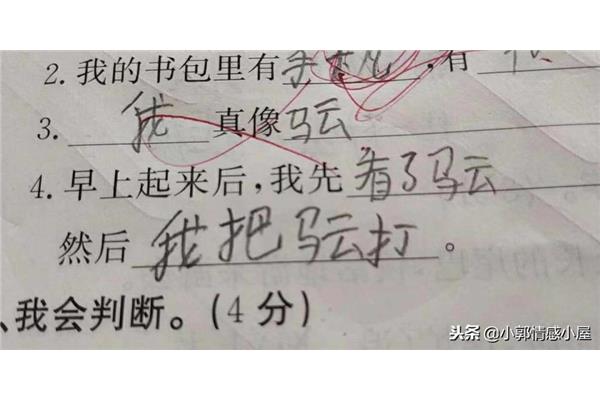 2.我的书包里有手,有
3.我真像马云
4.早上起来后,我先看了马云
然后我把马云打。
、我会判断。(4分)
头条 @小郭情感小屋